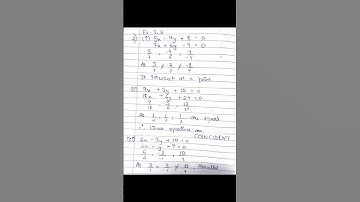 Ex-3.2
2) (i) 5x - 4y + 8 = 0
7x + 6y - 9 = 0
5/7 , -4/6 , 8/-9
As 5/7 ≠
It intersect at a point
(ii) 9x + 3y + 12 = 0
18x + 6y + 24 = 0
9/18 = 3/6 = 12/24
As 1/2, 1/2, 1/2 are equal
∴ linear equation are COINCIDENT
(iii) 6x - 3y + 10 = 0
2x - y + 9 = 0
6/2 , -3/-1 , 10/9
As 3/1 = 3/1 ≠ 10/9 , Parallel